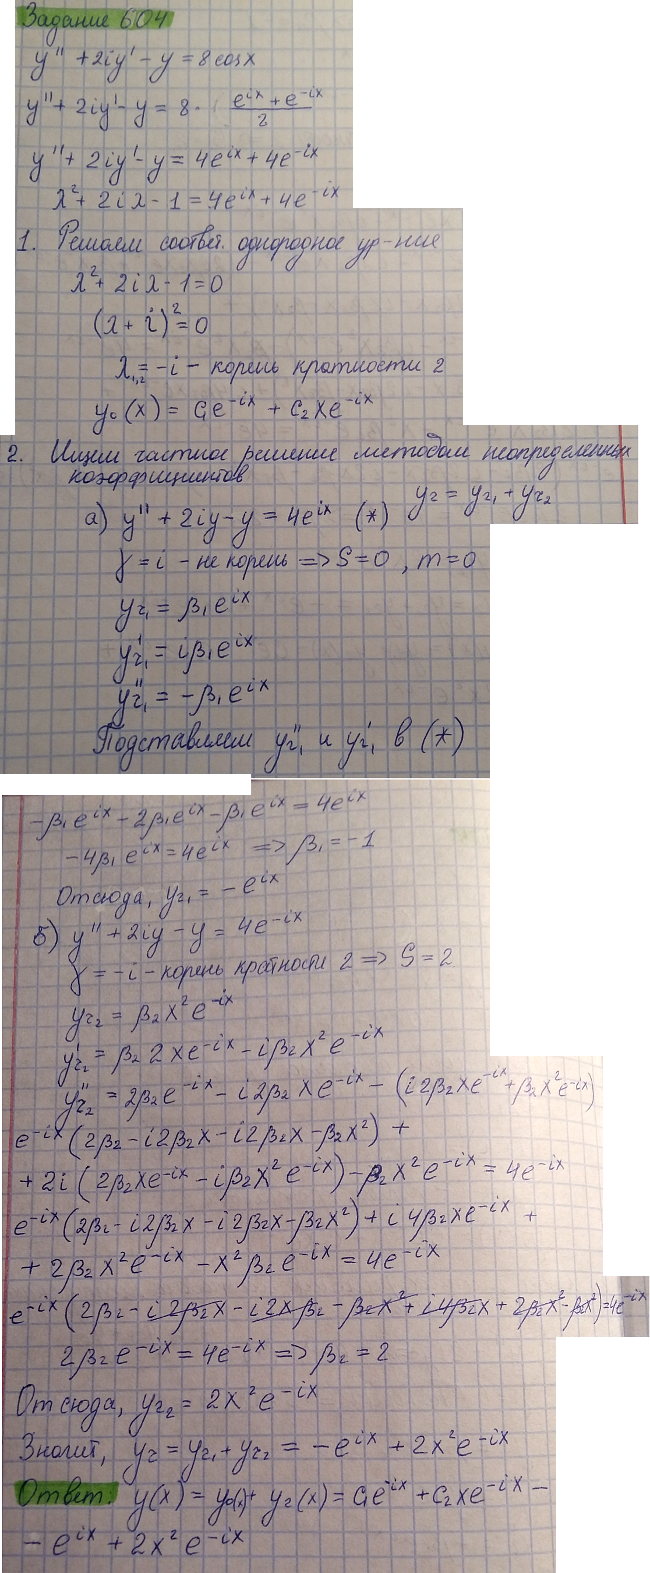 Задание 604
y'' + 2iy' - y = 8cosx
y'' + 2iy' - y = 8 · (e^{ix} + e^{-ix})/2
y'' + 2iy' - y = 4e^{ix} + 4e^{-ix}
λ² + 2iλ - 1 = 4e^{ix} + 4e^{-ix}
1. Решаем соответ. однородное ур-ние
λ² + 2iλ - 1 = 0
(λ + i)² = 0
λ₁,₂ = -i - корень кратности 2
y₀(x) = C₁e^{-ix} + C₂xe^{-ix}
2. Ищем частное решение методом неопределенных
коэффициентов
yг = yг₁ + yг₂
а) y'' + 2iy - y = 4e^{ix} (*)
γ = i - не корень => S = 0, m = 0
yг₁ = β₁e^{ix}
y'г₁ = iβ₁e^{ix}
y''г₁ = -β₁e^{ix}
Подставляем y''г₁ и y'г₁ в (*)
-β₁e^{ix} - 2β₁e^{ix} - β₁e^{ix} = 4e^{ix}
-4β₁e^{ix} = 4e^{ix} => β₁ = -1
Отсюда, yг₁ = -e^{ix}
б) y'' + 2iy - y = 4e^{-ix}
γ = -i - корень кратности 2 => S = 2
yг₂ = β₂x²e^{-ix}
y'г₂ = β₂2xe^{-ix} - iβ₂x²e^{-ix}
y''г₂ = 2β₂e^{-ix} - i2β₂xe^{-ix} - (i2β₂xe^{-ix} + β₂x²e^{-ix})
e^{-ix}(2β₂ - i2β₂x - i2β₂x - β₂x²) +
+ 2i(2β₂xe^{-ix} - iβ₂x²e^{-ix}) - β₂x²e^{-ix} = 4e^{-ix}
e^{-ix}(2β₂ - i2β₂x - i2β₂x - β₂x²) + i4β₂xe^{-ix} +
+ 2β₂x²e^{-ix} - x²β₂e^{-ix} = 4e^{-ix}
e^{-ix}(2β₂ - i2β₂x - i2xβ₂ - β₂x² + i4β₂x + 2β₂x² - β₂x²) = 4e^{-ix}
2β₂e^{-ix} = 4e^{-ix} => β₂ = 2
Отсюда, yг₂ = 2x²e^{-ix}
Значит, yг = yг₁ + yг₂ = -e^{ix} + 2x²e^{-ix}
Ответ: y(x) = y₀(x) + yг(x) = C₁e^{-ix} + C₂xe^{-ix} -
- e^{ix} + 2x²e^{-ix}